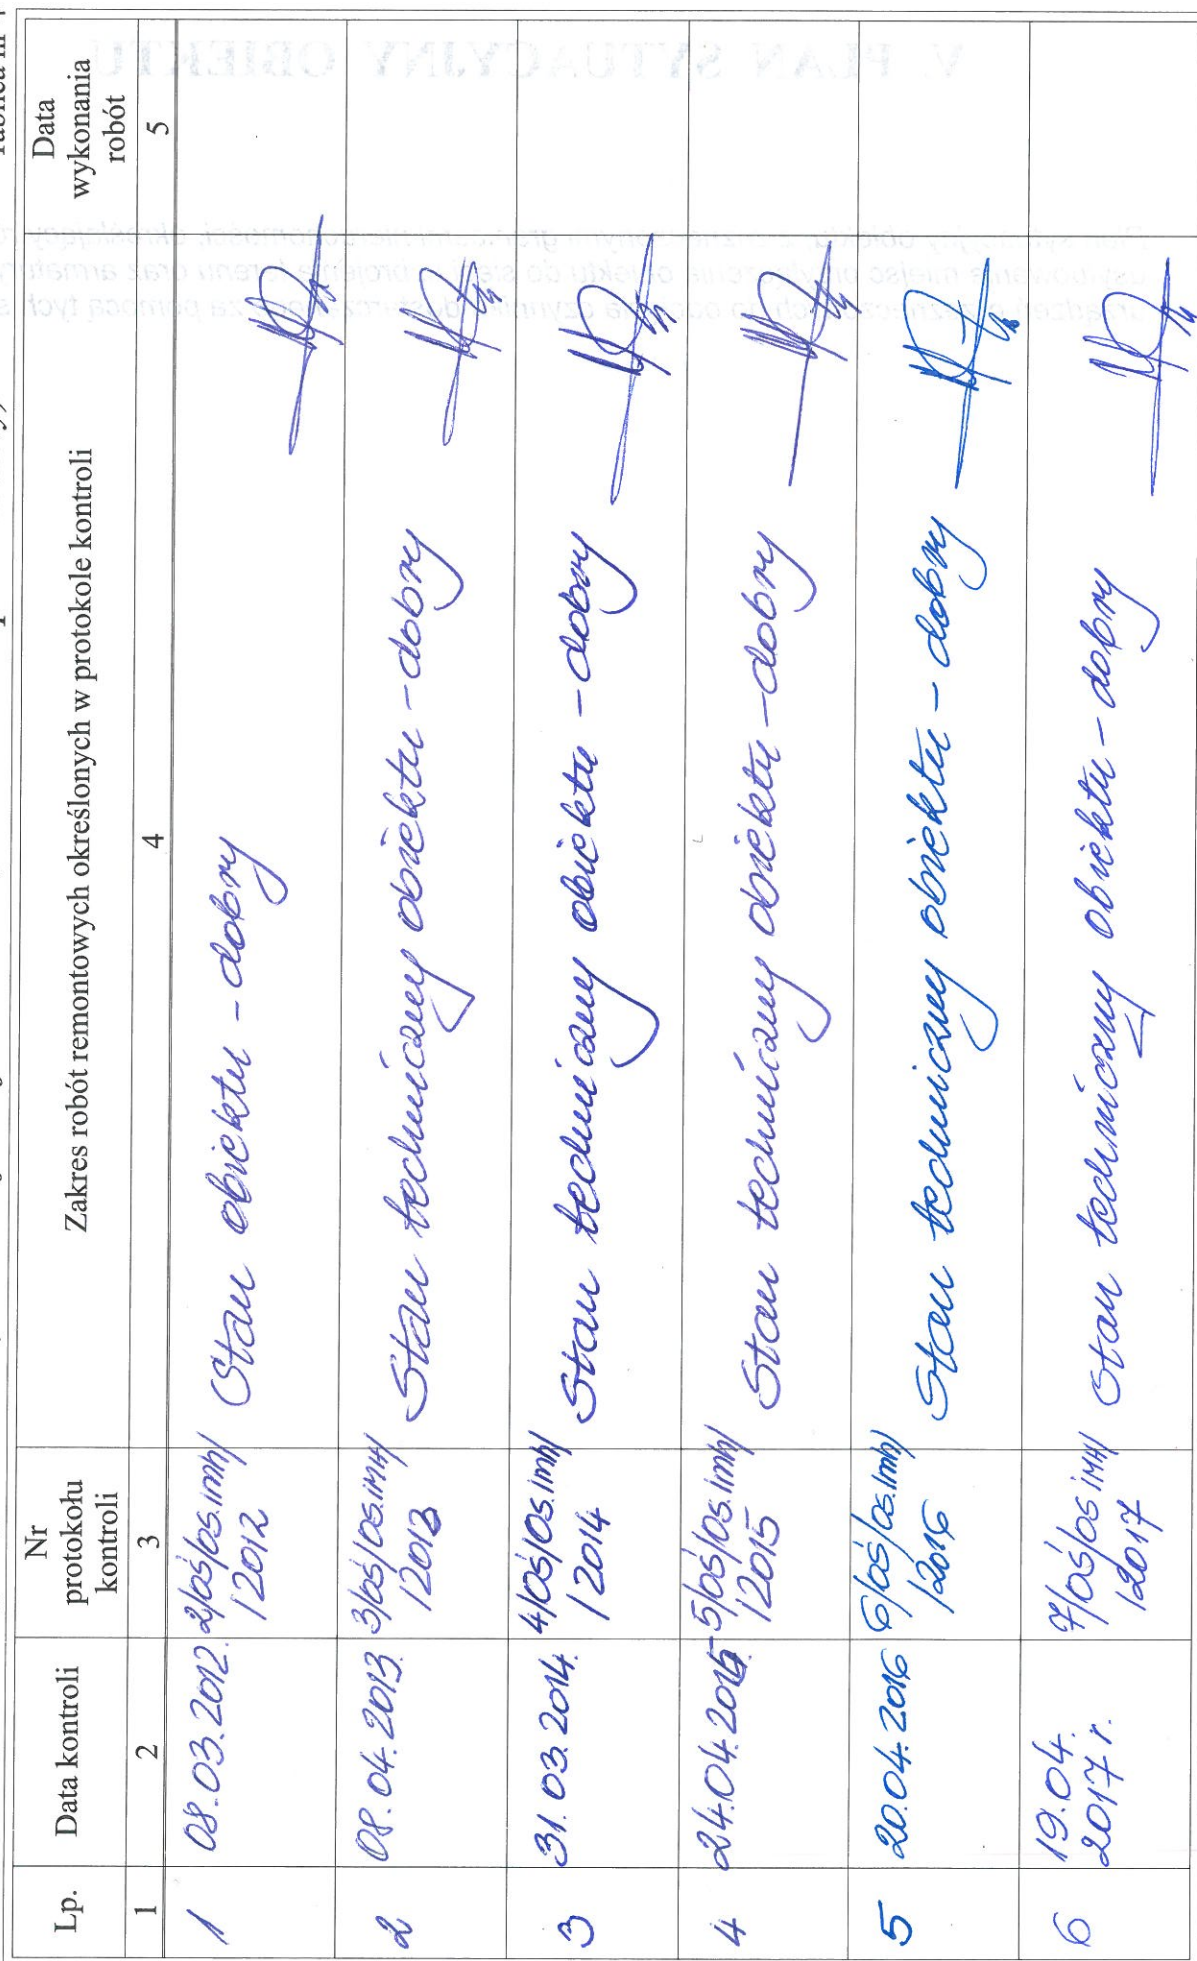 Lp.
Data kontroli
Nr
protokołu
kontroli
Zakres robót remontowych określonych w protokole kontroli
Data
wykonania
robót
1
2
3
4
5
1
08.03.2012.
2/OŚ/OS.imh/
/2012
Stan obiektu - dobry
2
08.04.2013.
3/OŚ/OS.iMH/
/2013
Stan techniczny obiektu - dobry
3
31.03.2014.
4/OŚ/OS.imh/
/2014
Stan techniczny obiektu - dobry
4
24.04.2015
5/OŚ/OS.imh/
/2015
Stan techniczny obiektu - dobry
5
20.04.2016
6/OŚ/OS.imh/
/2016
Stan techniczny obiektu - dobry
6
19.04.
2017 r.
7/OŚ/OS iMH/
/2017
Stan techniczny obiektu - dobry
V. PLAN SYTUACYJNY OBIEKTU